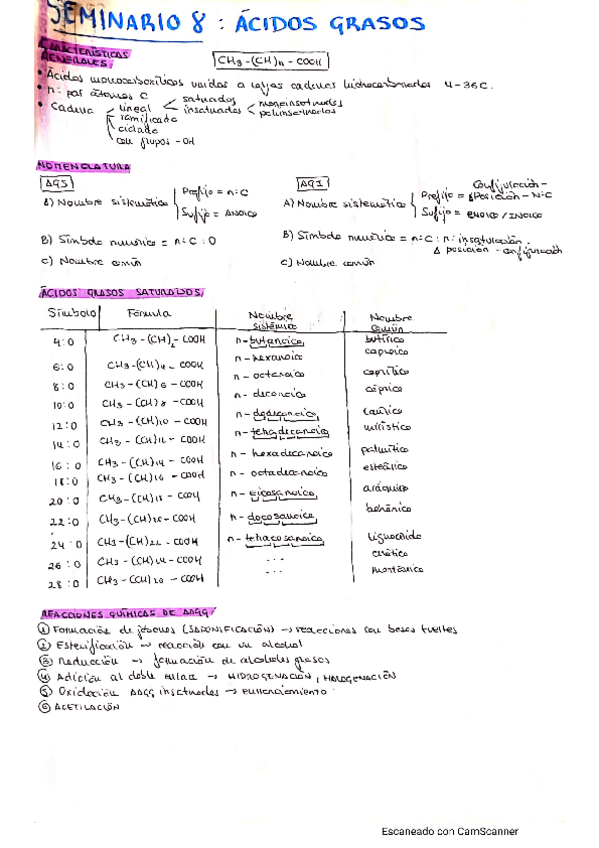 SEMINARIO 8 : ÁCIDOS GRASOS
CARACTERÍSTICAS
GENERALES
CH3-(CH)n-COOH
• Ácidos monocarboxílicos unidos a largas cadenas hidrocarbonadas 4-36C.
• nº par átomos C
• Cadena
lineal
saturados
insaturados
monoinsaturados
poliinsaturados
ramificada
ciclada
con grupos -OH
NOMENCLATURA
AGS
A) Nombre sistemático
Prefijo = nºC
Sufijo = ANOICO
B) Símbolo numérico = nºC : 0
C) Nombre común
AGI
A) Nombre sistemático
Configuración-
Prefijo = Posición - N·C
Sufijo = ENOICO / INOICO
B) Símbolo numérico = nºC : nº insaturación
Δ posición - configuración
C) Nombre común
ÁCIDOS GRASOS SATURADOS
Símbolo Fórmula Nombre sistémico Nombre común
4:0 CH3-(CH)2-COOH n-butanoico butírico
6:0 CH3-(CH)4-COOH n-hexanoic caproico
8:0 CH3-(CH)6-COOH n-octanoico caprílico
10:0 CH3-(CH)8-COOH n-decanoico cáprico
12:0 CH3-(CH)10-COOH n-dodecanoico láurico
14:0 CH3-(CH)12-COOH n-tetradecanoico mirístico
16:0 CH3-(CH)14-COOH n-hexadecanoico palmítico
18:0 CH3-(CH)16-COOH n-octadecanoico esteárico
20:0 CH3-(CH)18-COOH n-eicosanoico aráquico
22:0 CH3-(CH)20-COOH n-docosanoico behénico
24:0 CH3-(CH)22-COOH n-tetracosanoico lignocérico
26:0 CH3-(CH)24-COOH ... cerótico
28:0 CH3-(CH)26-COOH ... montánico
REACCIONES QUÍMICAS DE AAGG
① Formación de jabones (SAPONIFICACIÓN) → reacciones con bases fuertes
② Esterificación → reacción con un alcohol
③ Reducción → formación de alcoholes grasos
④ Adición al doble enlace → HIDROGENACIÓN, HALOGENACIÓN
⑤ Oxidación AAGG insaturados → enranciamiento
⑥ ACETILACIÓN
Escaneado con CamScanner